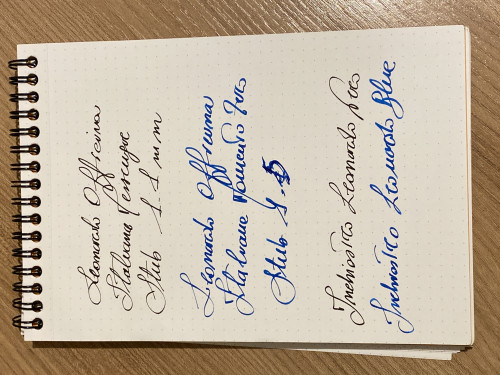 Leonardo Officina
Italiana
Stub 1.1 mm
Leonardo Officina
Italiana Momento Zero
Stub 1.5
Inchiostro Leonardo Nero
Inchiostro Leonardo Blue